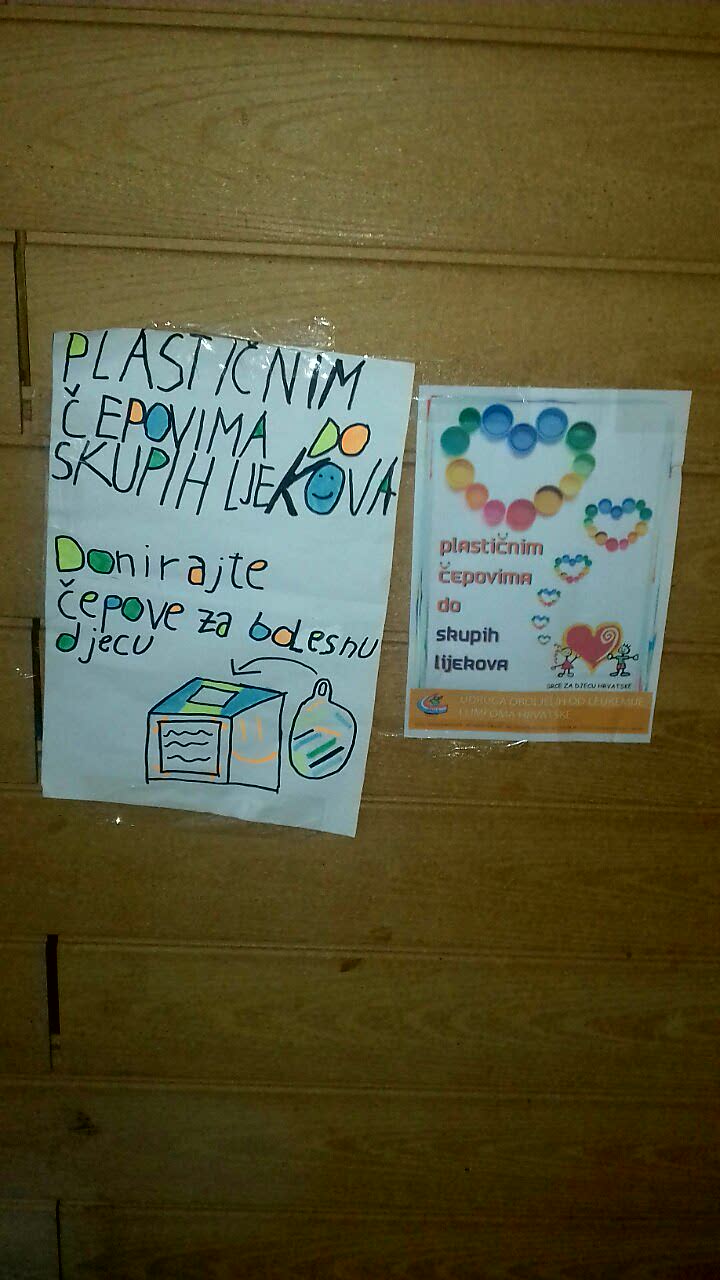 PLASTIČNIM
ČEPOVIMA DO
SKUPIH LJEKOVA
Donirajte
čepove za bolesnu
djecu
plastičnim
čepovima
do
skupih
lijekova
SRCE ZA DJECU HRVATSKE
UDRUGA OBOLJELIH OD LEUKEMIJE
I LIMFOMA HRVATSKE